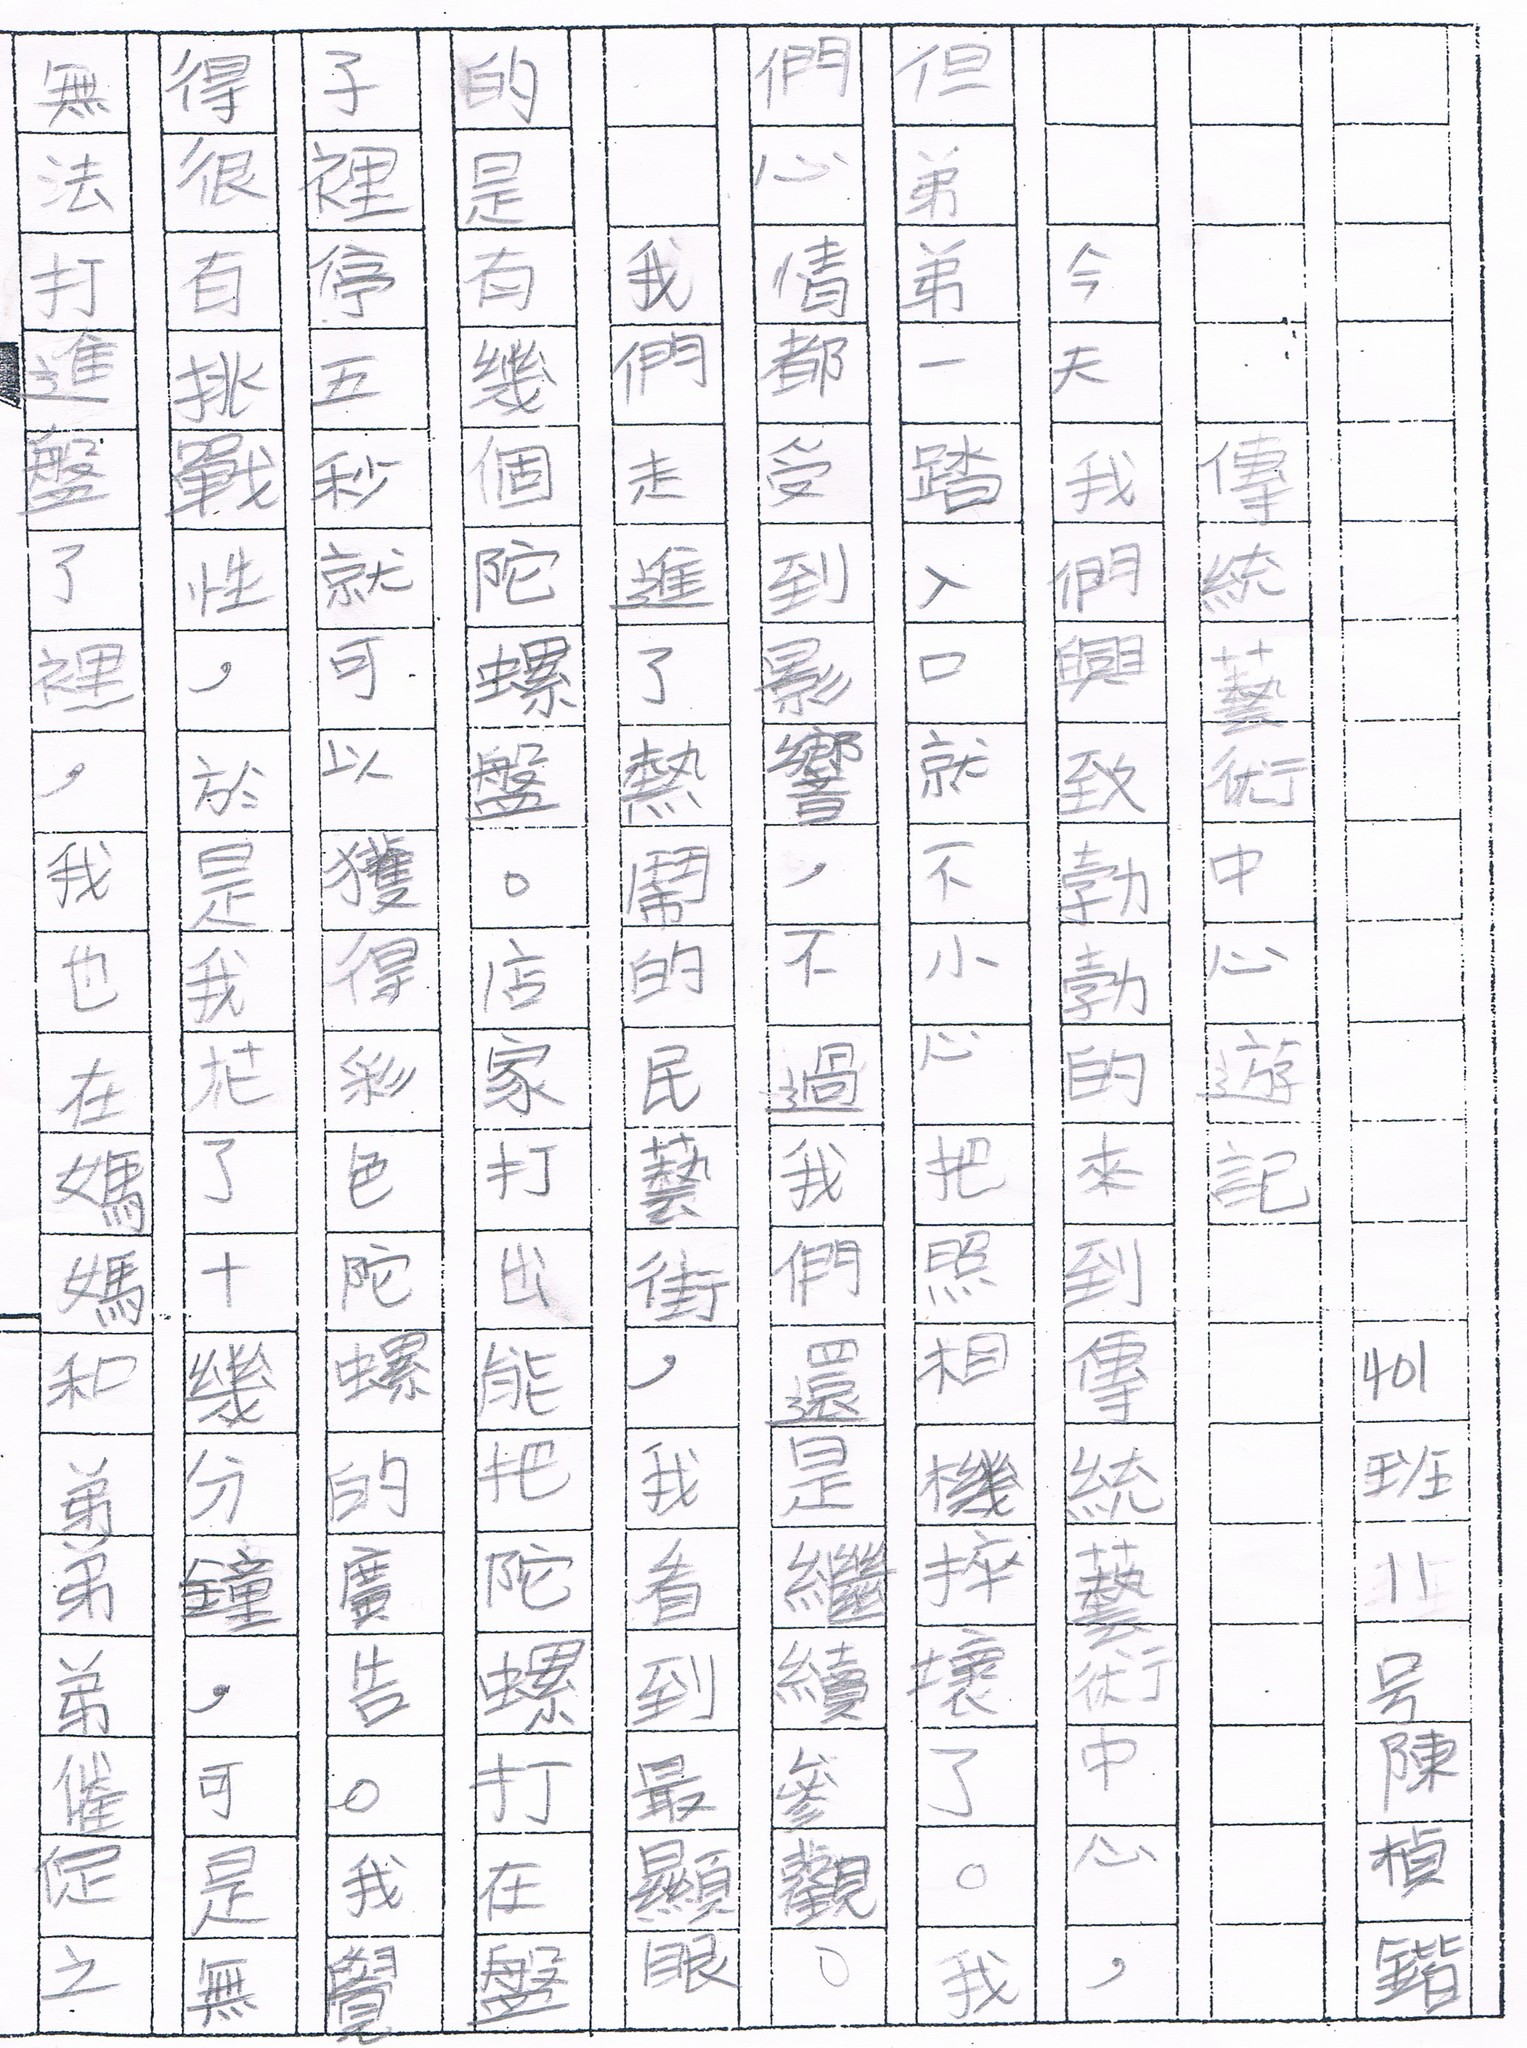 401班11号陳楨鍇
傳統藝術中心遊記
今天我們興致勃勃的來到傳統藝術中心，
但弟弟一踏入口就不小心把照相機摔壞了。我
們心情都受到影響，不過我們還是繼續參觀。
我們走進了熱鬧的民藝街，我看到最顯眼
的是有幾個陀螺盤。店家打出能把陀螺打在盤
子裡停五秒就可以獲得彩色陀螺的廣告。我覺
得很有挑戰性，於是我花了十幾分鐘，可是無
無法打進盤了裡，我也在媽媽和弟弟弟催促之